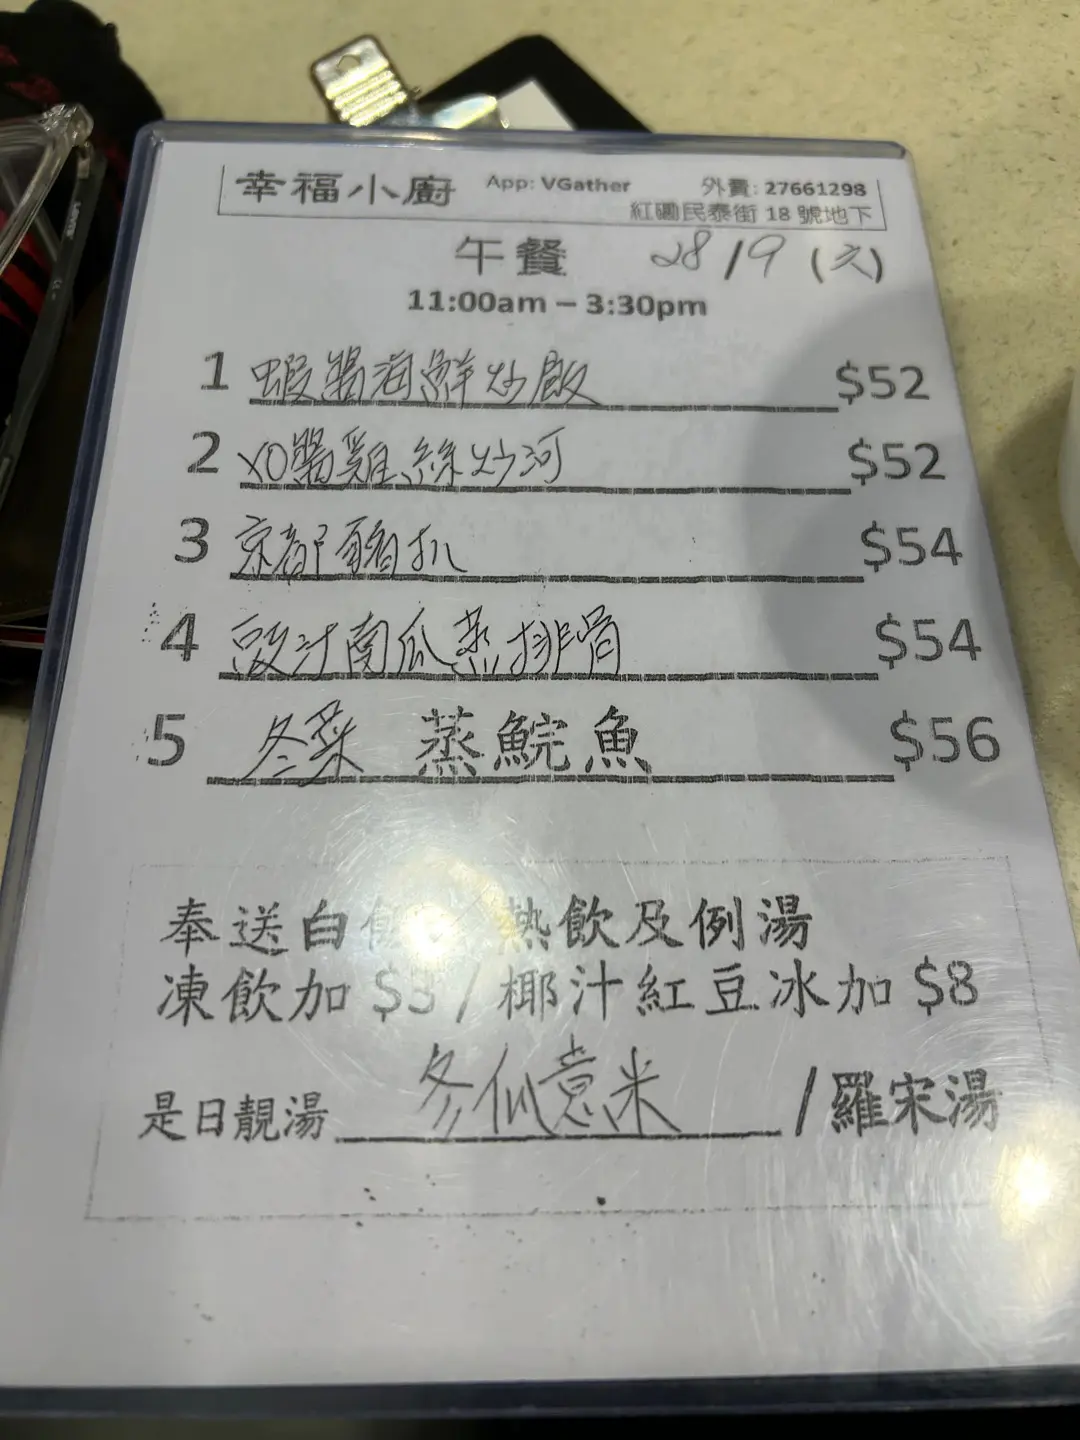 幸福小廚 App: VGather 外賣: 27661298
紅磡民泰街 18 號地下
午餐 28/9 (六)
11:00am – 3:30pm
1 蝦醬海鮮炒飯 $52
2 XO醬雞絲炒河 $52
3 京都豬扒 $54
4 豉汁南瓜蒸排骨 $54
5 冬菜 蒸鯇魚 $56
奉送白 熱飲及例湯
凍飲加 $3 / 椰汁紅豆冰加 $8
是日靚湯 冬瓜薏米 / 羅宋湯